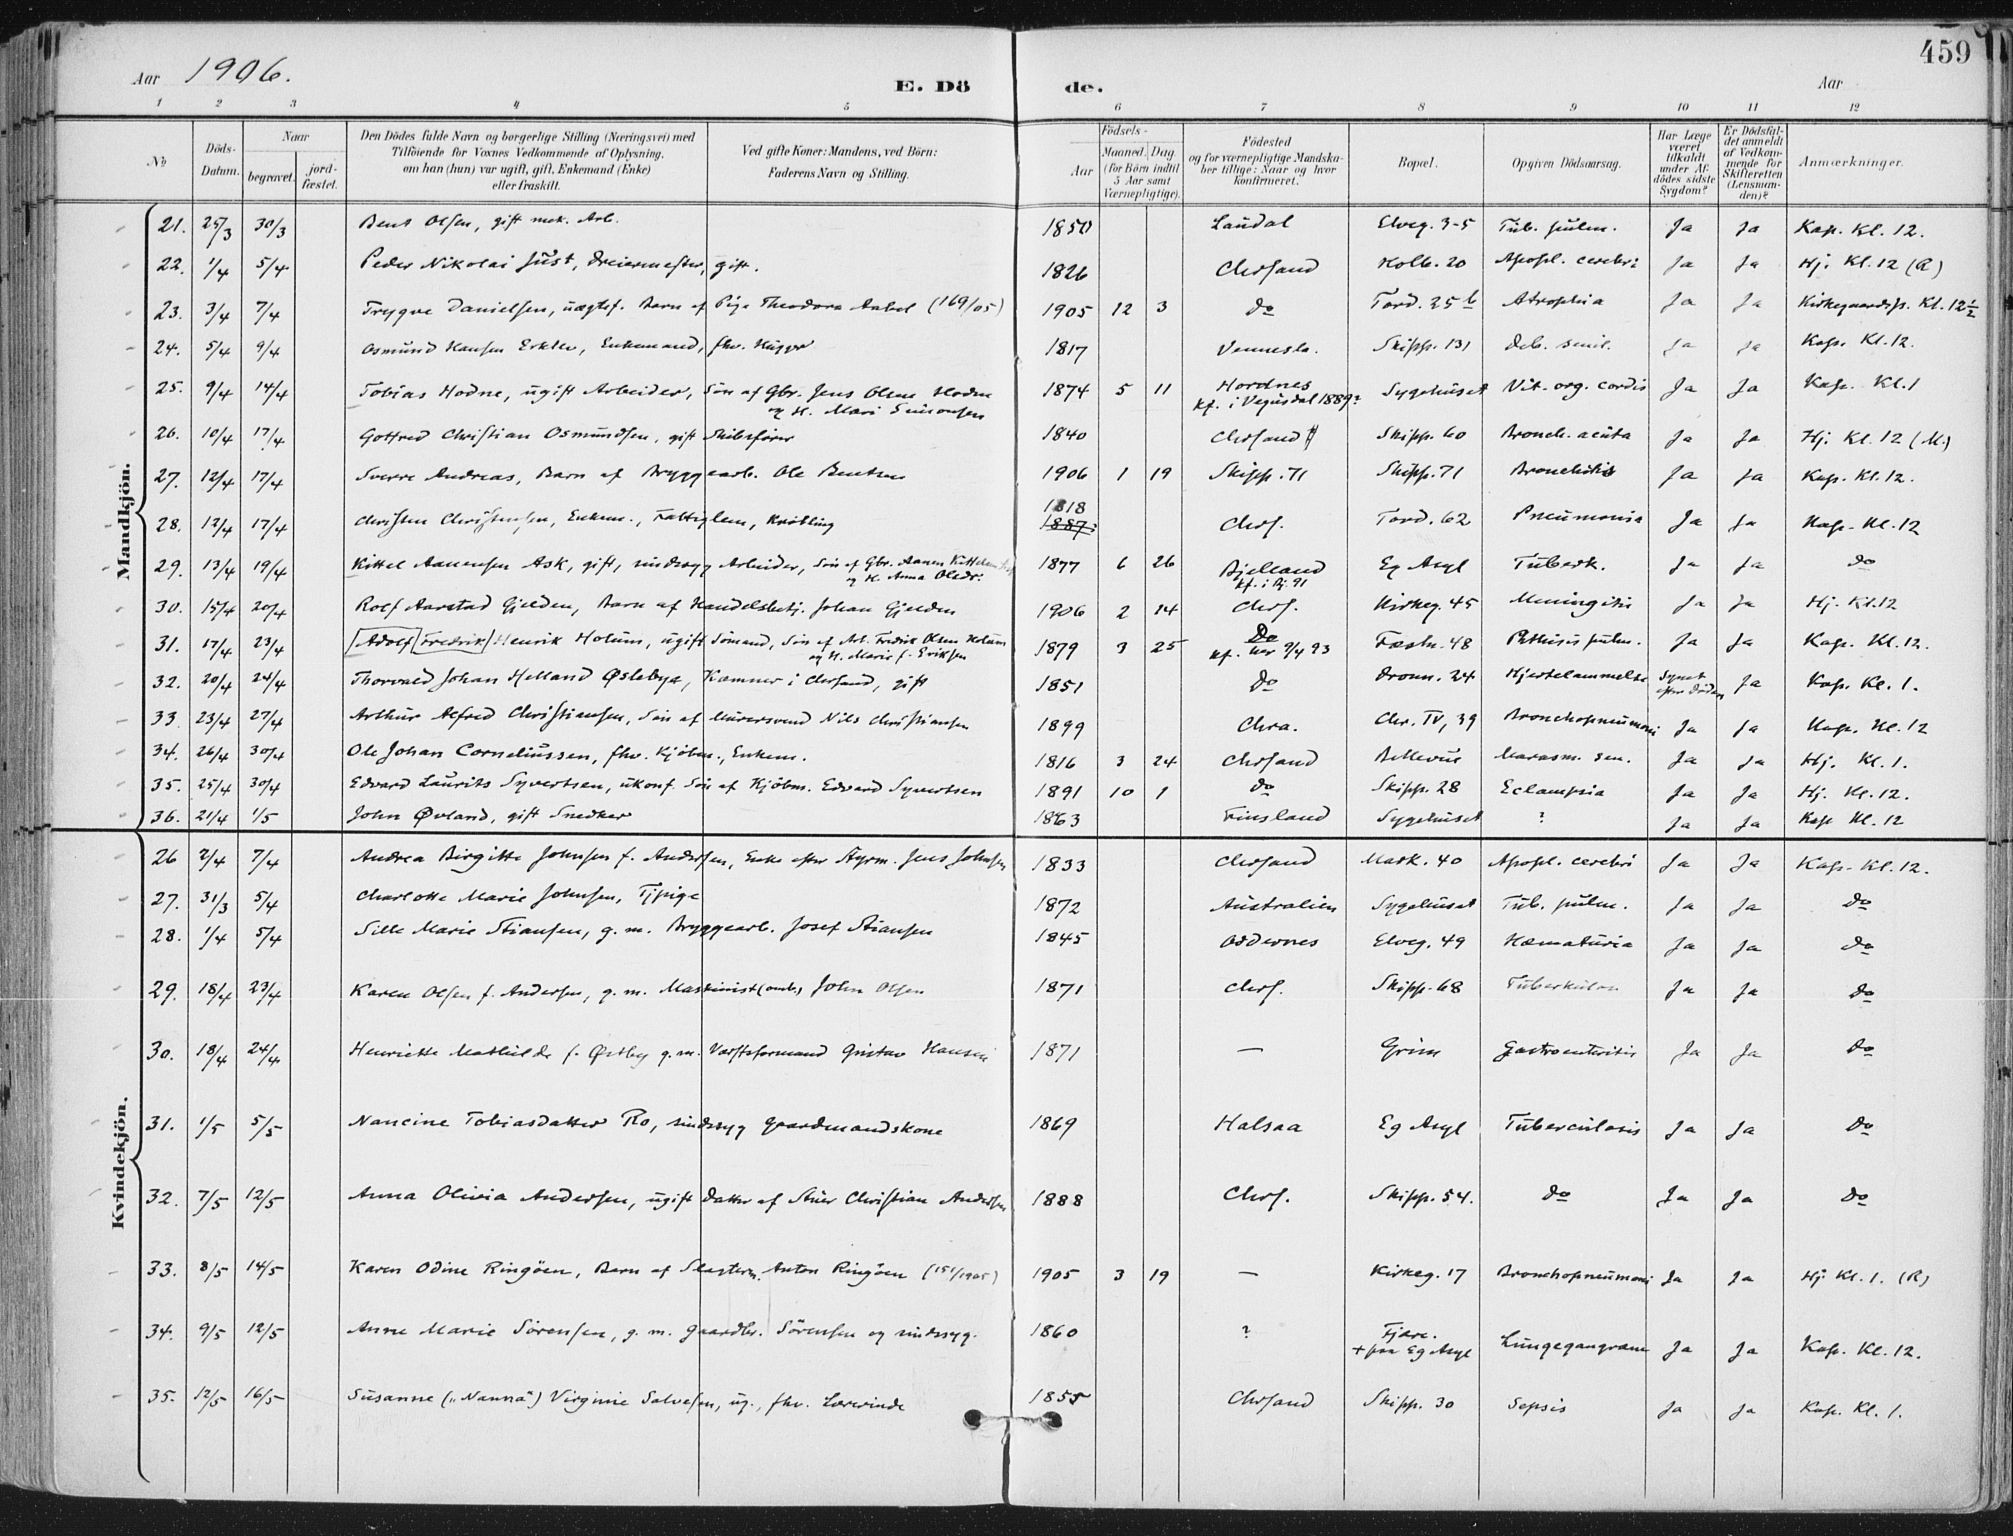 459
Aar 1906.
E. Dö de.
Aar
1 2 3 4 5 6 7 8 9 10 11 12
No
Döds-Datum.
Naar begravet. jord-fæstet.
Den Dödes fulde Navn og borgerlige Stilling (Næringsvei) med Tilföiende for Voxnes Vedkommende af Oplysning, om han (hun) var ugift, gift, Enkemand (Enke) eller fraskilt.
Ved gifte Koner: Mandens, ved Börn: Faderens Navn og Stilling.
Födsels-
Aar Maaned. Dag (for Börn indtil 5 Aar samt Værnepligtige).
Födested og for værnepligtige Mandskaber tillige: Naar og hvor konfirmeret.
Bopæl.
Opgiven Dödsaarsag.
Har Læge været tilkaldt under Afdödes sidste Sygdom?
Er Dödsfaldet anmeldt af Vedkommende for Skifteretten (Lensmanden)?
Anmærkninger.
Mandkjön.
21. 25/3 30/3 Bent Olsen, gift mek. Arb. 1850 Laudal Elveg. 3-5 Tub. pulm. Ja Ja Kap. Kl. 12.
22. 1/4 5/4 Peder Nikolai Just, Dreiermester, gift. 1826 Chrsand Holb. 20 Apopl. cerebri Ja Ja Hj. Kl. 12 (R)
23. 3/4 7/4 Trygve Danielsen, uægtef. Barn af Pige Theodora Aabel (169/05) 1905 12 3 do Tord. 25 b Atrophia Ja Ja Kirkegaardsp. Kl. 12½
24. 5/4 9/4 Osmund Hansen Enkem., Enkemand, fhv. 1817 Vennesla. Skipp. 131 Deb. senil. Ja Ja Kap. Kl. 12.
25. 9/4 14/4 Tobias Hodne, ugift Arbeider, Søn af Gbr. Jens Olsen Hodne
og H. Mari Simonsen 1874 5 11 Hordnes
kf. i Vegusdal 1889? Sygehuset Vit. org. cordis Ja Ja Kap. Kl. 1
26. 10/4 17/4 Gottfred Christian Osmundsen, gift Skibsfører 1840 Chrsand Skipp. 60 Bronch. acuta Ja Ja Hj. Kl. 12 (M.)
27. 12/4 17/4 Sverre Andreas, Barn af Bryggearb. Ole Bentsen 1906 1 19 Skipp. 71 Skipp. 71 Bronchitis Ja Ja Kap. Kl. 12.
28. 12/4 17/4 Christen Christensen, Enkem., Fattiglem, Krøbling 1818
1887? Chrs. Tord. 62 Pneumonia Ja Ja Kap. Kl. 12
29. 13/4 19/4 Kittel Aanensen Ask, gift, sindssyg Arbeider, Søn af Gbr. Aanen Kittelsen
og H. Anna Olsdr. 1877 6 26 Bjelland
kf. i Bj. 91 Eg Asyl Tuberk. Ja Ja do
30. 15/4 20/4 Rolf Aarstad Gjelden, Barn af Handelsbetj. Johan Gjelden 1906 2 14 Chrs. Kirkeg. 45 Meningitis Ja Ja Hj. Kl. 12
31. 17/4 23/4 Adolf Fredrik Henrik Holum, ugift Sømand, Søn af Arb. Fredrik Olsen Holum
og H. Marie f. Eriksen 1879 3 25 Do
kf. her 9/4 93 Fæstn. 48 Phthisis pulm. Ja Ja Kap. Kl. 12.
32. 20/4 24/4 Thorvald Johan Helland Øslebye, Kæmner i Chrsand, gift 1851 do Dronn. 24 Hjertelammelse Synet
efter Døden Ja Kap. Kl. 1.
33. 23/4 27/4 Arthur Alfred Christiansen, Søn af Murersvend Nils Christiansen 1899 Chra. Chr. IV, 39 Bronchopneumoni Ja Ja Kap. Kl. 12
34. 26/4 30/4 Ole Johan Corneliussen, fhv. Kjøbm., Enkem. 1816 3 24 Chrsand Bellevue Marasm. sen. Ja Ja Hj. Kl. 1.
35. 25/4 30/4 Edvard Laurits Syvertsen, ukonf. Søn af Kjøbm. Edvard Syvertsen 1891 10 1 do Skipp. 28 Eclampsia Ja Ja Hj. Kl. 12.
36. 21/4 1/5 John Øvland, gift Snedker 1863 Finsland Sygehuset ? Ja Ja Kap Kl. 12
Kvindekjön.
26 2/4 7/4 Andrea Birgitte Johnsen f. Andersen, Enke efter Styrm. Jens Johnsen 1833 Chrsand Mark. 40 Apopl. cerebri Ja Ja Kap. Kl. 12.
27. 31/3 5/4 Charlotte Marie Johnsen, Tjpige 1872 Australien Sygehuset Tub. pulm. Ja Ja do
28. 1/4 5/4 Sille Marie Stiansen, g. m. Bryggearb. Josef Stiansen 1845 Oddernes Elveg. 49 Hæmaturia Ja Ja do
29. 18/4 23/4 Karen Olsen f. Andersen, g. m. Maskinist (omb.) John Olsen 1871 Chrs. Skipp. 68 Tuberkulos Ja Ja do
30. 18/4 24/4 Henriette Mathilde f. Østby g. m. Værftsformand Gustav Hansen 1871 — Grim Gastroenteritis Ja Ja do
31. 1/5 5/5 Nancine Tobiasdatter Ro, sindssyg Gaardmandskone 1869 Halsaa Eg Asyl Tuberculosis Ja Ja do
32. 7/5 12/5 Anna Olivia Andersen, ugift Datter af Stuer Christian Andersen 1888 Chrs. Skipp. 54. do Ja Ja do
33. 8/5 14/5 Karen Odine Ringöen, Barn af Slagterm. Anton Ringöen (151/1905) 1905 3 19 — Kirkeg. 17 Bronchopneumoni Ja Ja Hj. Kl. 1. (R)
34. 9/5 12/5 Anne Marie Sörensen, g. m. Gaardbr. Sörensen og sindssyg. 1860 ? Fjære.
+ paa Eg Asyl Lungegangræne Ja Ja Kap. Kl. 12.
35. 12/5 16/5 Susanne („Nanna“) Virginie Salvesen, ug., fhv. Lærerinde 1855 Chrsand Skipp. 30 Sepsis Ja Ja Kap. Kl. 1.